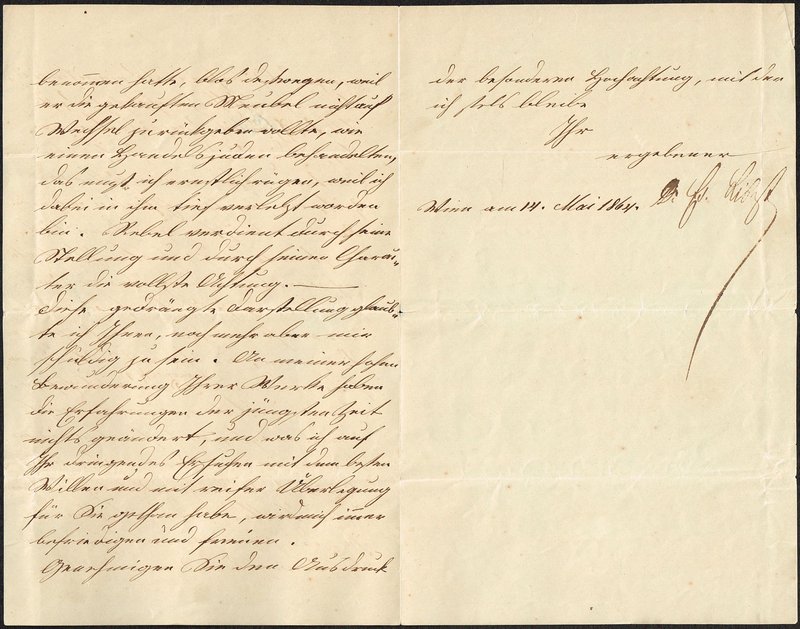 benommen hatte, blos deßwegen, weil
er die gekauften Meubel nicht auf
Wechsel zurückgeben wollte, wie
einen Handelsjuden behandelten,
das muß ich ernstlich rügen, weil ich
dabei in ihm tief verletzt worden
bin. Nebel verdient durch seine
Stellung und durch seinen Charak-
ter die vollste Achtung. —
Diese gedrängte Darstellung glaub-
te ich Ihnen, noch mehr aber mir
schuldig zu sein. An meiner hohen
Bewunderung Ihrer Werke haben
die Erfahrungen der jüngsten Zeit
nichts geändert, und was ich auf
Ihr dringendes Ersuchen mit dem besten
Willen und mit reifer Überlegung
für Sie gethan habe, wird mich immer
befriedigen und freuen.
Genehmigen Sie den Ausdruck
der besonderen Hochachtung, mit der
ich stets bleibe
Ihr
ergebener
Wien am 14. Mai 1864.